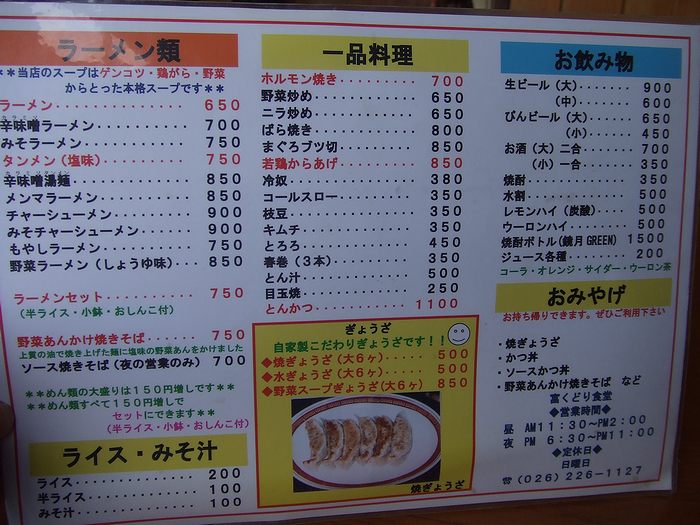 ラーメン類
＊＊当店のスープはゲンコツ・鶏がら・野菜
からとった本格スープです＊＊
ラーメン・・・・・・・・・・・・・ 650
辛味噌ラーメン・・・・・・・・・ 700
みそラーメン・・・・・・・・・・・ 750
タンメン（塩味）・・・・・・・・ 750
辛味噌湯麺・・・・・・・・・・・・ 850
メンマラーメン・・・・・・・・・ 850
チャーシューメン・・・・・・・ 900
みそチャーシューメン・・・・ 900
もやしラーメン・・・・・・・・・ 750
野菜ラーメン（しょうゆ味）・・・ 850
ラーメンセット・・・・・・・・・ 750
（半ライス・小鉢・おしんこ付）
野菜あんかけ焼きそば・・・・ 750
上質の油で焼き上げた麺に塩味の野菜あんをかけました
ソース焼きそば（夜の営業のみ） 700
＊＊めん類の大盛りは150円増しです＊＊
＊＊めん類すべて150円増しで
セットにできます＊＊
（半ライス・小鉢・おしんこ付）
ライス・みそ汁
ライス・・・・・・・・・・・・・・ 200
半ライス・・・・・・・・・・・・・ 100
みそ汁・・・・・・・・・・・・・・ 100
一品料理
ホルモン焼き・・・・・・・・・・ 700
野菜炒め・・・・・・・・・・・・・ 650
ニラ炒め・・・・・・・・・・・・・ 650
ばら焼き・・・・・・・・・・・・・ 800
まぐろブツ切・・・・・・・・・・ 850
若鶏からあげ・・・・・・・・・・ 850
冷奴・・・・・・・・・・・・・・・ 380
コールスロー・・・・・・・・・・ 350
枝豆・・・・・・・・・・・・・・・ 350
キムチ・・・・・・・・・・・・・・ 350
とろろ・・・・・・・・・・・・・・ 450
春巻（3本）・・・・・・・・・・・ 350
とん汁・・・・・・・・・・・・・・ 500
目玉焼・・・・・・・・・・・・・・ 250
とんかつ・・・・・・・・・・・・・ 1100
ぎょうざ
自家製こだわりぎょうざです！！
◆焼ぎょうざ（大6ヶ）・・・・・ 500
◆水ぎょうざ（大6ヶ）・・・・・ 500
◆野菜スープぎょうざ（大6ヶ） 850
焼ぎょうざ
お飲み物
生ビール（大）・・・・・・・ 900
（中）・・・・・・・ 600
びんビール（大）・・・・・ 650
（小）・・・・・ 450
お酒（大）二合・・・・・・ 700
（小）一合・・・・・・ 350
焼酎・・・・・・・・・・・・・ 350
水割・・・・・・・・・・・・・ 500
レモンハイ（炭酸）・・・・ 500
ウーロンハイ・・・・・・・・ 500
焼酎ボトル(鏡月GREEN) 1500
ジュース各種・・・・・・・・ 200
コーラ・オレンジ・サイダー・ウーロン茶
おみやげ
お持ち帰りできます。ぜひご利用下さい
・焼ぎょうざ
・かつ丼
・ソースかつ丼
・野菜あんかけ焼きそば など
富くどり食堂
◆営業時間◆
昼 AM11:30～PM2:00
夜 PM 6:30～PM11:00
◆定休日◆
日曜日
☎(026)226-1127